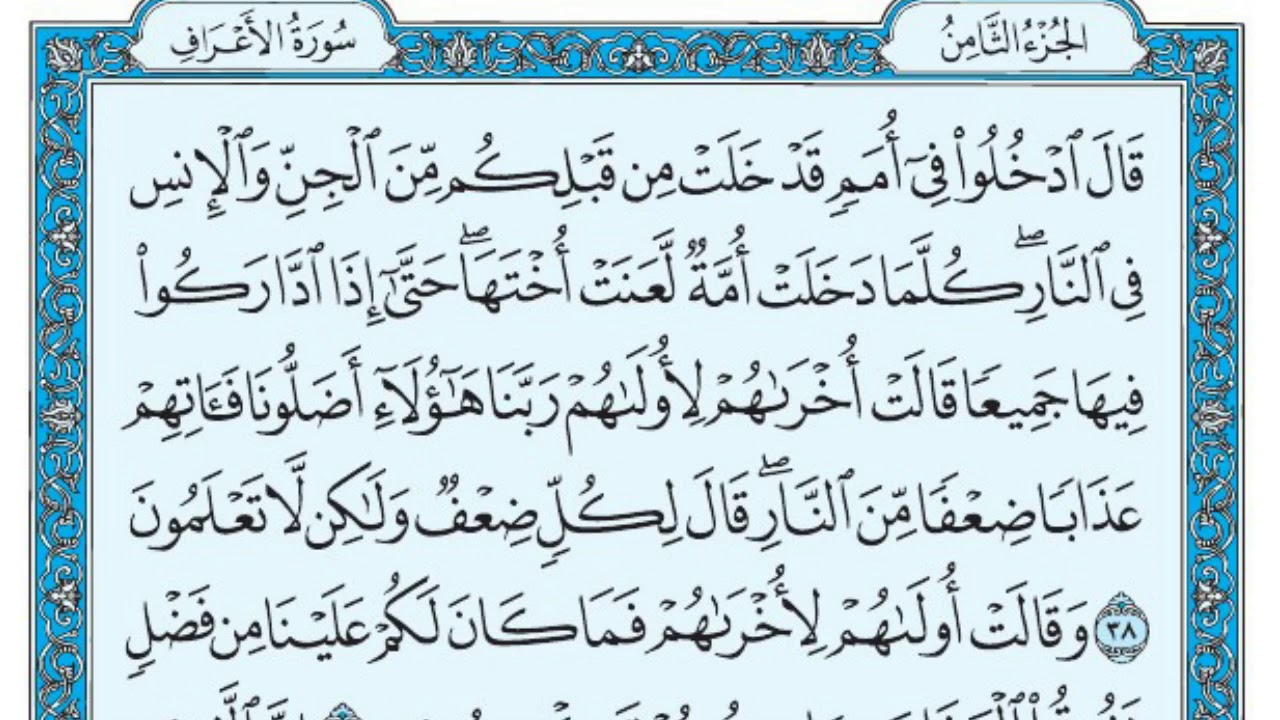 الجُزْءُ الثَّامِنُ
سُورَةُ الأَعْرَافِ
قَالَ ٱدْخُلُوا۟ فِىٓ أُمَمٍ قَدْ خَلَتْ مِن قَبْلِكُم مِّنَ ٱلْجِنِّ وَٱلْإِنسِ
فِى ٱلنَّارِ ۖ كُلَّمَا دَخَلَتْ أُمَّةٌ لَّعَنَتْ أُخْتَهَا ۖ حَتَّىٰٓ إِذَا ٱدَّارَكُوا۟
فِيهَا جَمِيعًا قَالَتْ أُخْرَىٰهُمْ لِأُولَىٰهُمْ رَبَّنَا هَـٰٓؤُلَآءِ أَضَلُّونَا فَـَٔاتِهِمْ
عَذَابًا ضِعْفًا مِّنَ ٱلنَّارِ ۖ قَالَ لِكُلٍّ ضِعْفٌ وَلَـٰكِن لَّا تَعْلَمُونَ
٣٨ وَقَالَتْ أُولَىٰهُمْ لِأُخْرَىٰهُمْ فَمَا كَانَ لَكُمْ عَلَيْنَا مِن فَضْلٍ